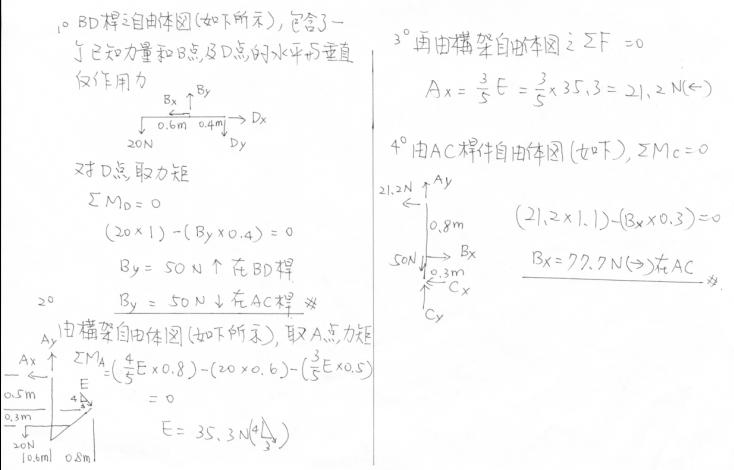 1° BD桿之自由体図(如下所示),包含了一
个已知力量和B点及D点的水平与垂直
反作用力
By
Bx
Dx
0.6m 0.4m
20N
Dy
对D点取力矩
ΣM_D = 0
(20×1)-(By×0.4)=0
By = 50N↑在BD桿
By = 50N↓在AC桿 ※
2°
由構架自由体図(如下所示),取A点力矩
ΣM_A=(4/5E×0.8)-(20×0.6)-(3/5E×0.5)
=0
E = 35.3N(4 3)
Ay
Ax
E
4
3
0.5m
0.3m
20N
0.6m 0.8m
3° 再由構架自由体図之ΣF=0
Ax = 3/5E = 3/5×35.3 = 21.2N(←)
4° 由AC桿件自由体図(如下),ΣMc=0
Ay
21.2N
0.8m
50N
Bx
0.3m
Cx
Cy
(21.2×1.1)-(Bx×0.3)=0
Bx=77.7N(→)在AC ※